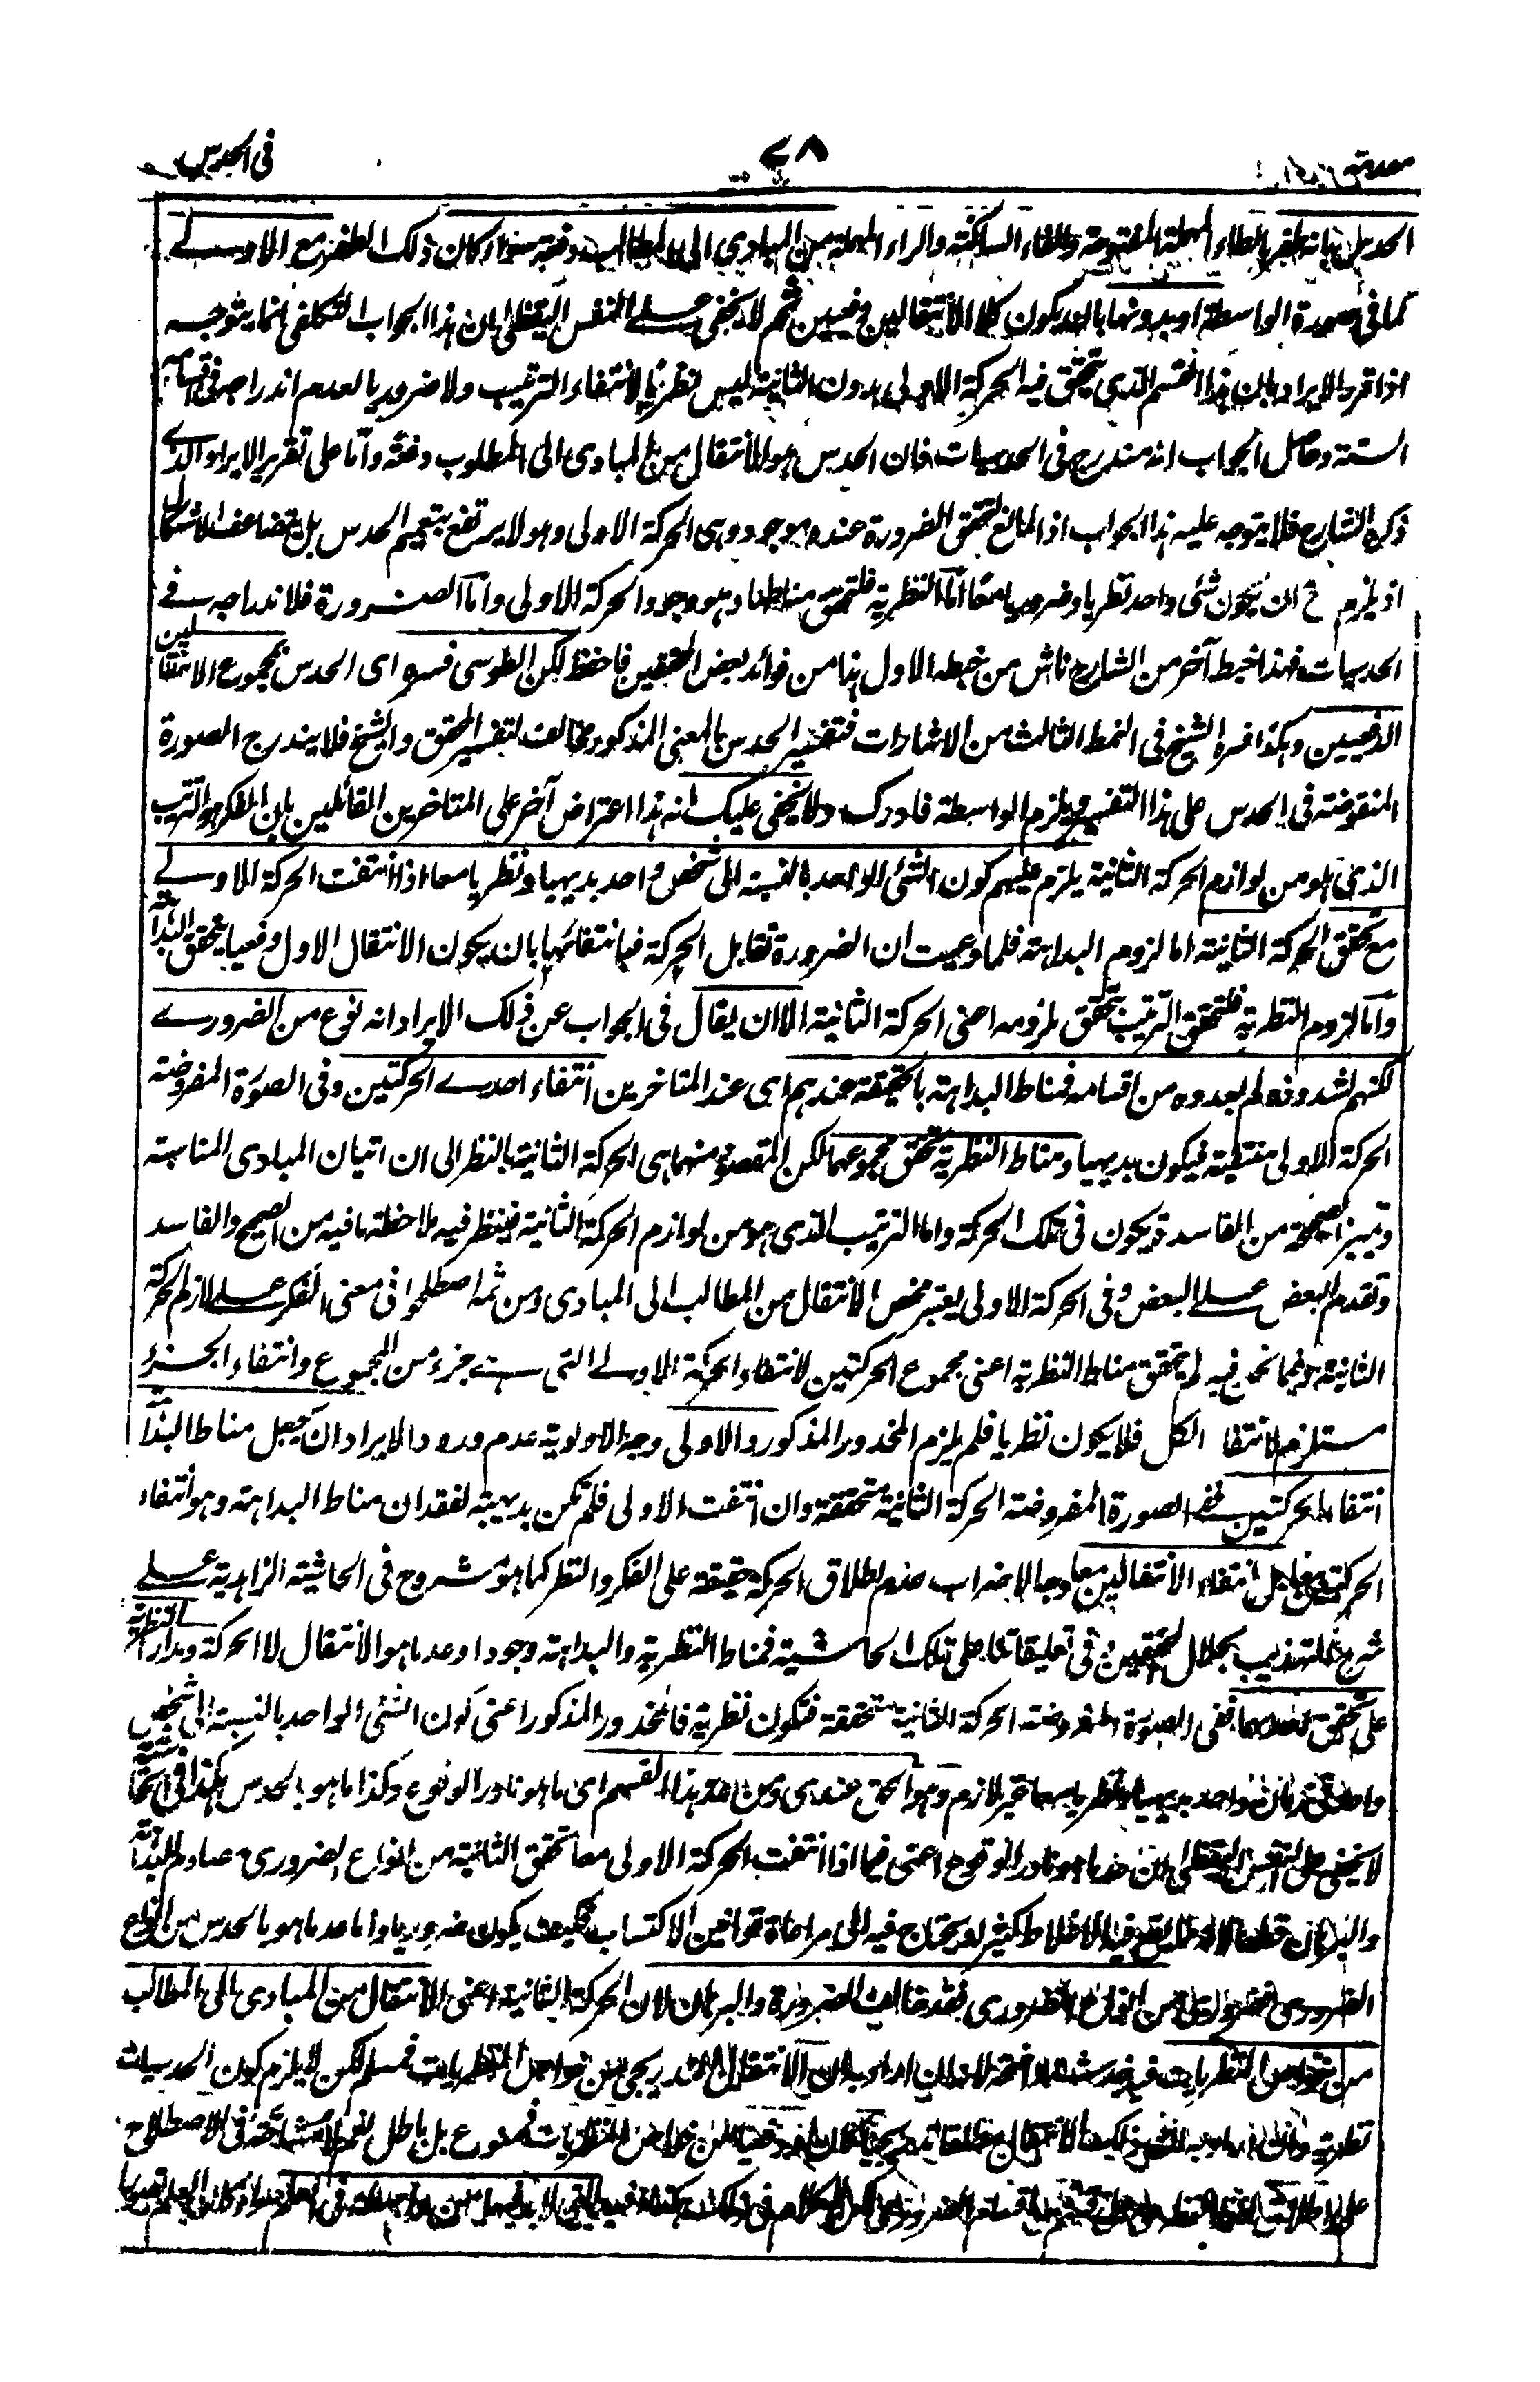 مقدمة
٧٨
فى الحدس
الحدس بانه طفر بالطاء المهملة المفتوحة والفاء الساكنة والراء المهملة من المبادى الى المطالب دفعة سواء كان ذلك الطفر مع الاولى
كما فى صورة الواسطة او بدونها بان يكون كلا الانتقالين دفعيين ثم لا يخفى على النفس اليقظى ان هذا الجواب التكلفى انما يتوجه
اذا قرر الايراد بان هذا القسم الذى تحقق فيه الحركة الاولى بدون الثانية ليس نظريا لانتفاء الترتيب ولا ضروريا لعدم اندراجه فى اقسامه
الستة وحاصل الجواب انه مندرج فى الحدسيات فان الحدس هو الانتقال من المبادى الى المطلوب دفعة واما على تقرير الايراد الذى
ذكره الشارح فلا يتوجه عليه هذا الجواب اذ المانع لتحقق الضرورة عنده موجود وهى الحركة الاولى وهو لا يرتفع بتعميم الحدس بل يتضاعف الاشكال
اذ يلزم ح ان يكون شئ واحد نظريا وضروريا معا اما النظرية فلتحقق مناطها وهو وجود الحركة الاولى واما الضرورة فلاندراجه فى
الحدسيات فهذا خبط آخر من الشارح ناش من خبطه الاول هذا من فوائد بعض المحققين فاحفظ لكن الطوسى فسره اى الحدس بمجموع الانتقالين
الدفعيين وهكذا فسره الشيخ فى النمط الثالث من الاشارات فتفسير الحدس بالمعنى المذكور مخالف لتفسير المحقق والشيخ فلا يندرج الصورة
المنقوضة فى الحدس على هذا التفسير فيلزم الواسطة فادرك ولا يخفى عليك انه هذا اعتراض آخر على المتاخرين القائلين بان الفكر هو الترتيب
الذى هو من لوازم الحركة الثانية يلزم عليهم كون الشئ الواحد بالنسبة الى شخص واحد بديهيا ونظريا معا اذا انتفت الحركة الاولى
مع تحقق الحركة الثانية اما لزوم البداهة فلما وعيت ان الضرورة تقابل الحركة فبانتفائها بان يكون الانتقال الاول دفعيا يتحقق البداهة
واما لزوم النظرية فلتحقق الترتيب بتحقق ملزومه اعنى الحركة الثانية الا ان يقال فى الجواب عن ذلك الايراد انه نوع من الضرورى
لكنهم لشذوذه لم يعدوه من اقسامه فمناط البداهة بالحقيقة عندهم اى عند المتاخرين انتفاء احدى الحركتين وفى الصورة المفروضة
الحركة الاولى منتفية فيكون بديهيا ومناط النظرية تحقق مجموعهما لكن المقصود منهما هى الحركة الثانية بالنظر الى ان اتيان المبادى المناسبة
وتميز الصحيحة من الفاسدة يكون فى تلك الحركة واما الترتيب الذى هو من لوازم الحركة الثانية فينظر فيه بملاحظة ما فيه من الصحيح والفاسد
وتقدم البعض على البعض وفى الحركة الاولى يعتبر محض الانتقال من المطالب الى المبادى ومن ثمه اصطلحوا فى معنى الفكر على لازم الحركة
الثانية وفيما نحن فيه لم يتحقق مناط النظرية اعنى مجموع الحركتين لانتفاء الحركة الاولى التى هى جزء من المجموع وانتفاء الجزء
مستلزم لانتفا الكل فلا يكون نظريا فلم يلزم المحذور المذكور والاولى وجه الاولوية عدم ورود الايراد ان يجعل مناط البداهة
انتفاء الحركتين ففى الصورة المفروضة الحركة الثانية متحققة وان انتفت الاولى فلم تكن بديهية لفقدان مناط البداهة وهو انتفاء
الحركتين معا بل انتفاء الانتقالين معا وجه الاضراب عدم اطلاق الحركة حقيقة على الفكر والنظر كما هو مشروح فى الحاشية الزاهدية على
شرح التهذيب لجلال المحققين وفى تعليقاتنا على تلك الحاشية فمناط النظرية والبداهة وجودا وعدما هو الانتقال لا الحركة ومدار النظرية
على تحقق احدهما ففى الصورة المفروضة الحركة الثانية متحققة فتكون نظرية فالمحذور المذكور اعنى كون الشئ الواحد بالنسبة الى شخص
واحد فى زمان واحد بديهيا ونظريا معا غير لازم وهو الحق عندى ومن عد هذا القسم اى ما هو نادر الوقوع وكذا ما هو بالحدس هكذا فى الحاشية
لا يخفى على النفس اليقظى ان عد ما هو نادر الوقوع اعنى فيما اذا انتفت الحركة الاولى مع تحقق الثانية من انواع الضرورى صادم البداهة
والبرهان قطعا لانه مما يقع فيه الاغلاط كثيرا ويحتاج فيه الى مراعاة قوانين الاكتساب فكيف يكون ضروريا واما عد ما هو بالحدس من انواع
الضرورى من انواع الضرورى فقد خالف الضرورة والبرهان لان الحركة الثانية اعنى الانتقال من المبادى الى المطالب
من خواص النظريات فيه خدشة لانه ان اراد بان الانتقال التدريجى من خواص النظريات فمسلم لكن لا يلزم كون الحدسيات
نظرية وان اراد به ان ذلك الانتقال مطلقا تدريجيا كان او دفعيا من خواص النظريات فممنوع بل باطل نعم لا مشاحة فى الاصطلاح